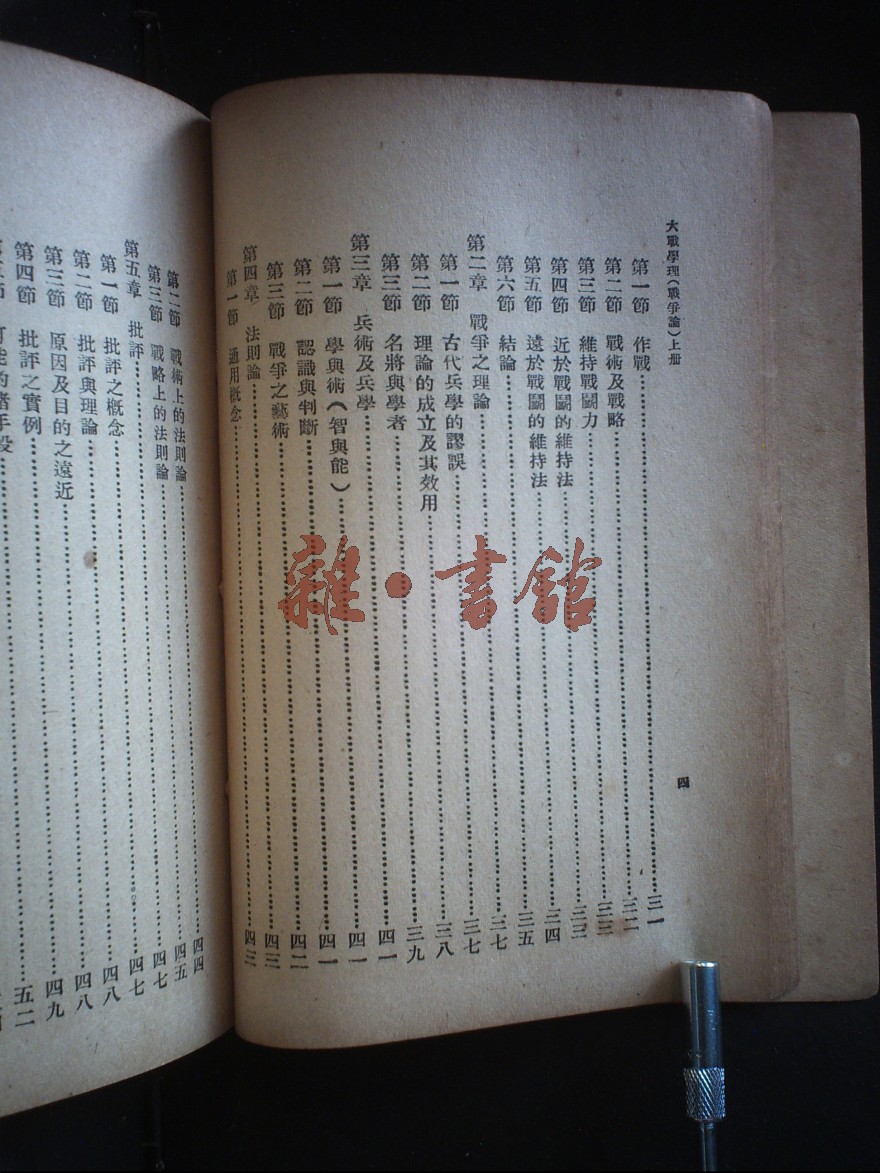 大戰學理(戰爭論)上册 四
第一節 作戰……三一
第二節 戰術及戰略……三二
第三節 維持戰鬪力……三三
第四節 近於戰鬪的維持法……三三
第五節 遠於戰鬪的維持法……三四
第六節 結論……三五
第二章 戰爭之理論……三七
第一節 古代兵學的謬誤……三七
第二節 理論的成立及其效用……三八
第三節 名將與學者……三九
第三章 兵術及兵學……四一
第一節 學與術(智與能)……四一
第二節 認識與判斷……四一
第三節 戰爭之藝術……四二
第四章 法則論……四三
第一節 通用概念……四三
第二節 戰術上的法則論……四四
第三節 戰略上的法則論……四五
第五章 批評……四七
第一節 批評之概念……四七
第二節 批評與理論……四八
第三節 原因及目的之遠近……四八
第四節 批評之實例……四九
可能的諸手段……五二
雜·書館